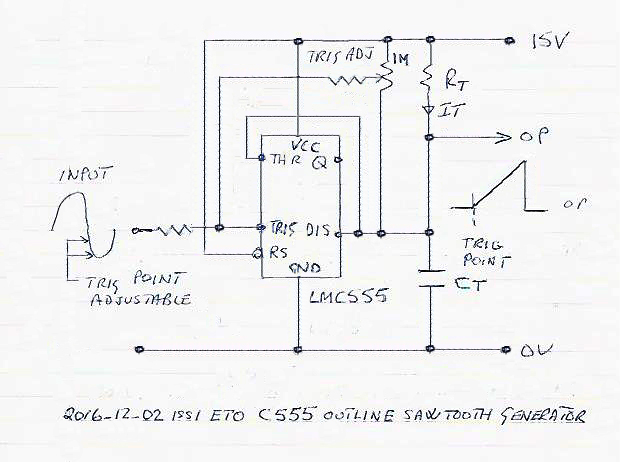 15V
TRIG ADJ
1M
RT
IT
VCC
THR Q
OP
INPUT
OP
TRIG DIS
RS
TRIG
POINT
GND
TRIG POINT
ADJUSTABLE
LMC555
CT
0V
2016-12-02 1SS1 ETO C555 OUTLINE SAWTOOTH GENERATOR